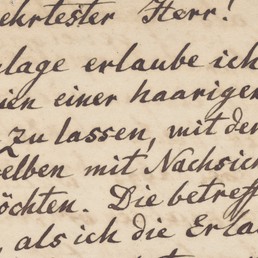 ehrtester Herr!
lage erlaube ich
ien einer haarigen
zu lassen, mit der
elben mit Nachsic
öchten. Die betreff
, als ich die Erla